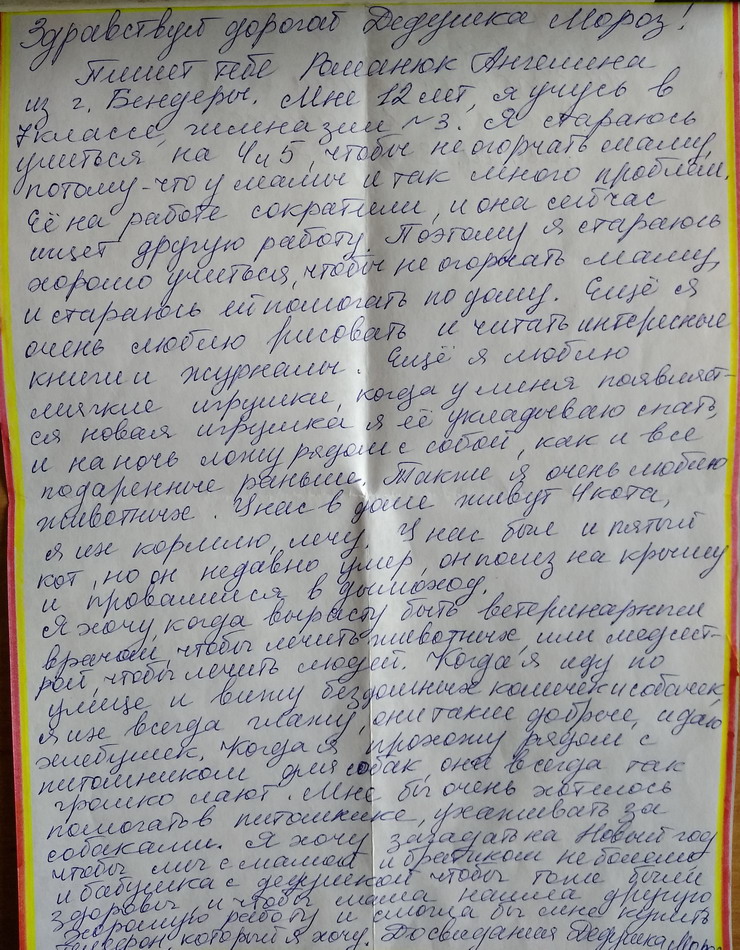 Здравствуй дорогой Дедушка Мороз!
Пишет тебе Романюк Ангелина
из г. Бендеры. Мне 12 лет, я учусь в
7 классе, гимназии №3. Я стараюсь
учиться, на 4 и 5, чтобы не огорчать маму,
потому-что у мамы и так много проблем.
Её на работе сократили, и она сейчас
ищет другую работу. Поэтому я стараюсь
хорошо учиться, чтобы не огорчать маму,
и стараюсь ей помогать по дому. Ещё я
очень люблю рисовать и читать интересные
книги и журналы. Ещё я люблю
мягкие игрушки, когда у меня появляет-
ся новая игрушка я её укладываю спать,
и на ночь ложу рядом с собой, как и все
подаренные раньше. Также я очень люблю
животных. У нас в доме живут 4 кота,
я их кормлю, лечу. У нас был и пятый
кот, но он недавно умер, он полез на крышу
и провалился в дымоход.
Я хочу, когда вырасту быть ветеринарным
врачом, чтобы лечить животных, или медсест-
рой, чтобы лечить людей. Когда я иду по
улице и вижу бездомных кошечек и собачек,
я их всегда глажу, они такие добрые, и даю
хлебушек. Когда я прохожу рядом с
питомником для собак, они всегда так
громко лают. Мне бы очень хотелось
помогать в питомнике, ухаживать за
собаками. Я хочу загадать на Новый год
чтобы мы с мамой и братиком не болели
и бабушка с дедушкой чтобы тоже были
здоровы и чтобы мама нашла другую
хорошую работу и смогла бы мне купить
телефон, который я хочу. Досвидания Дедушка Мороз